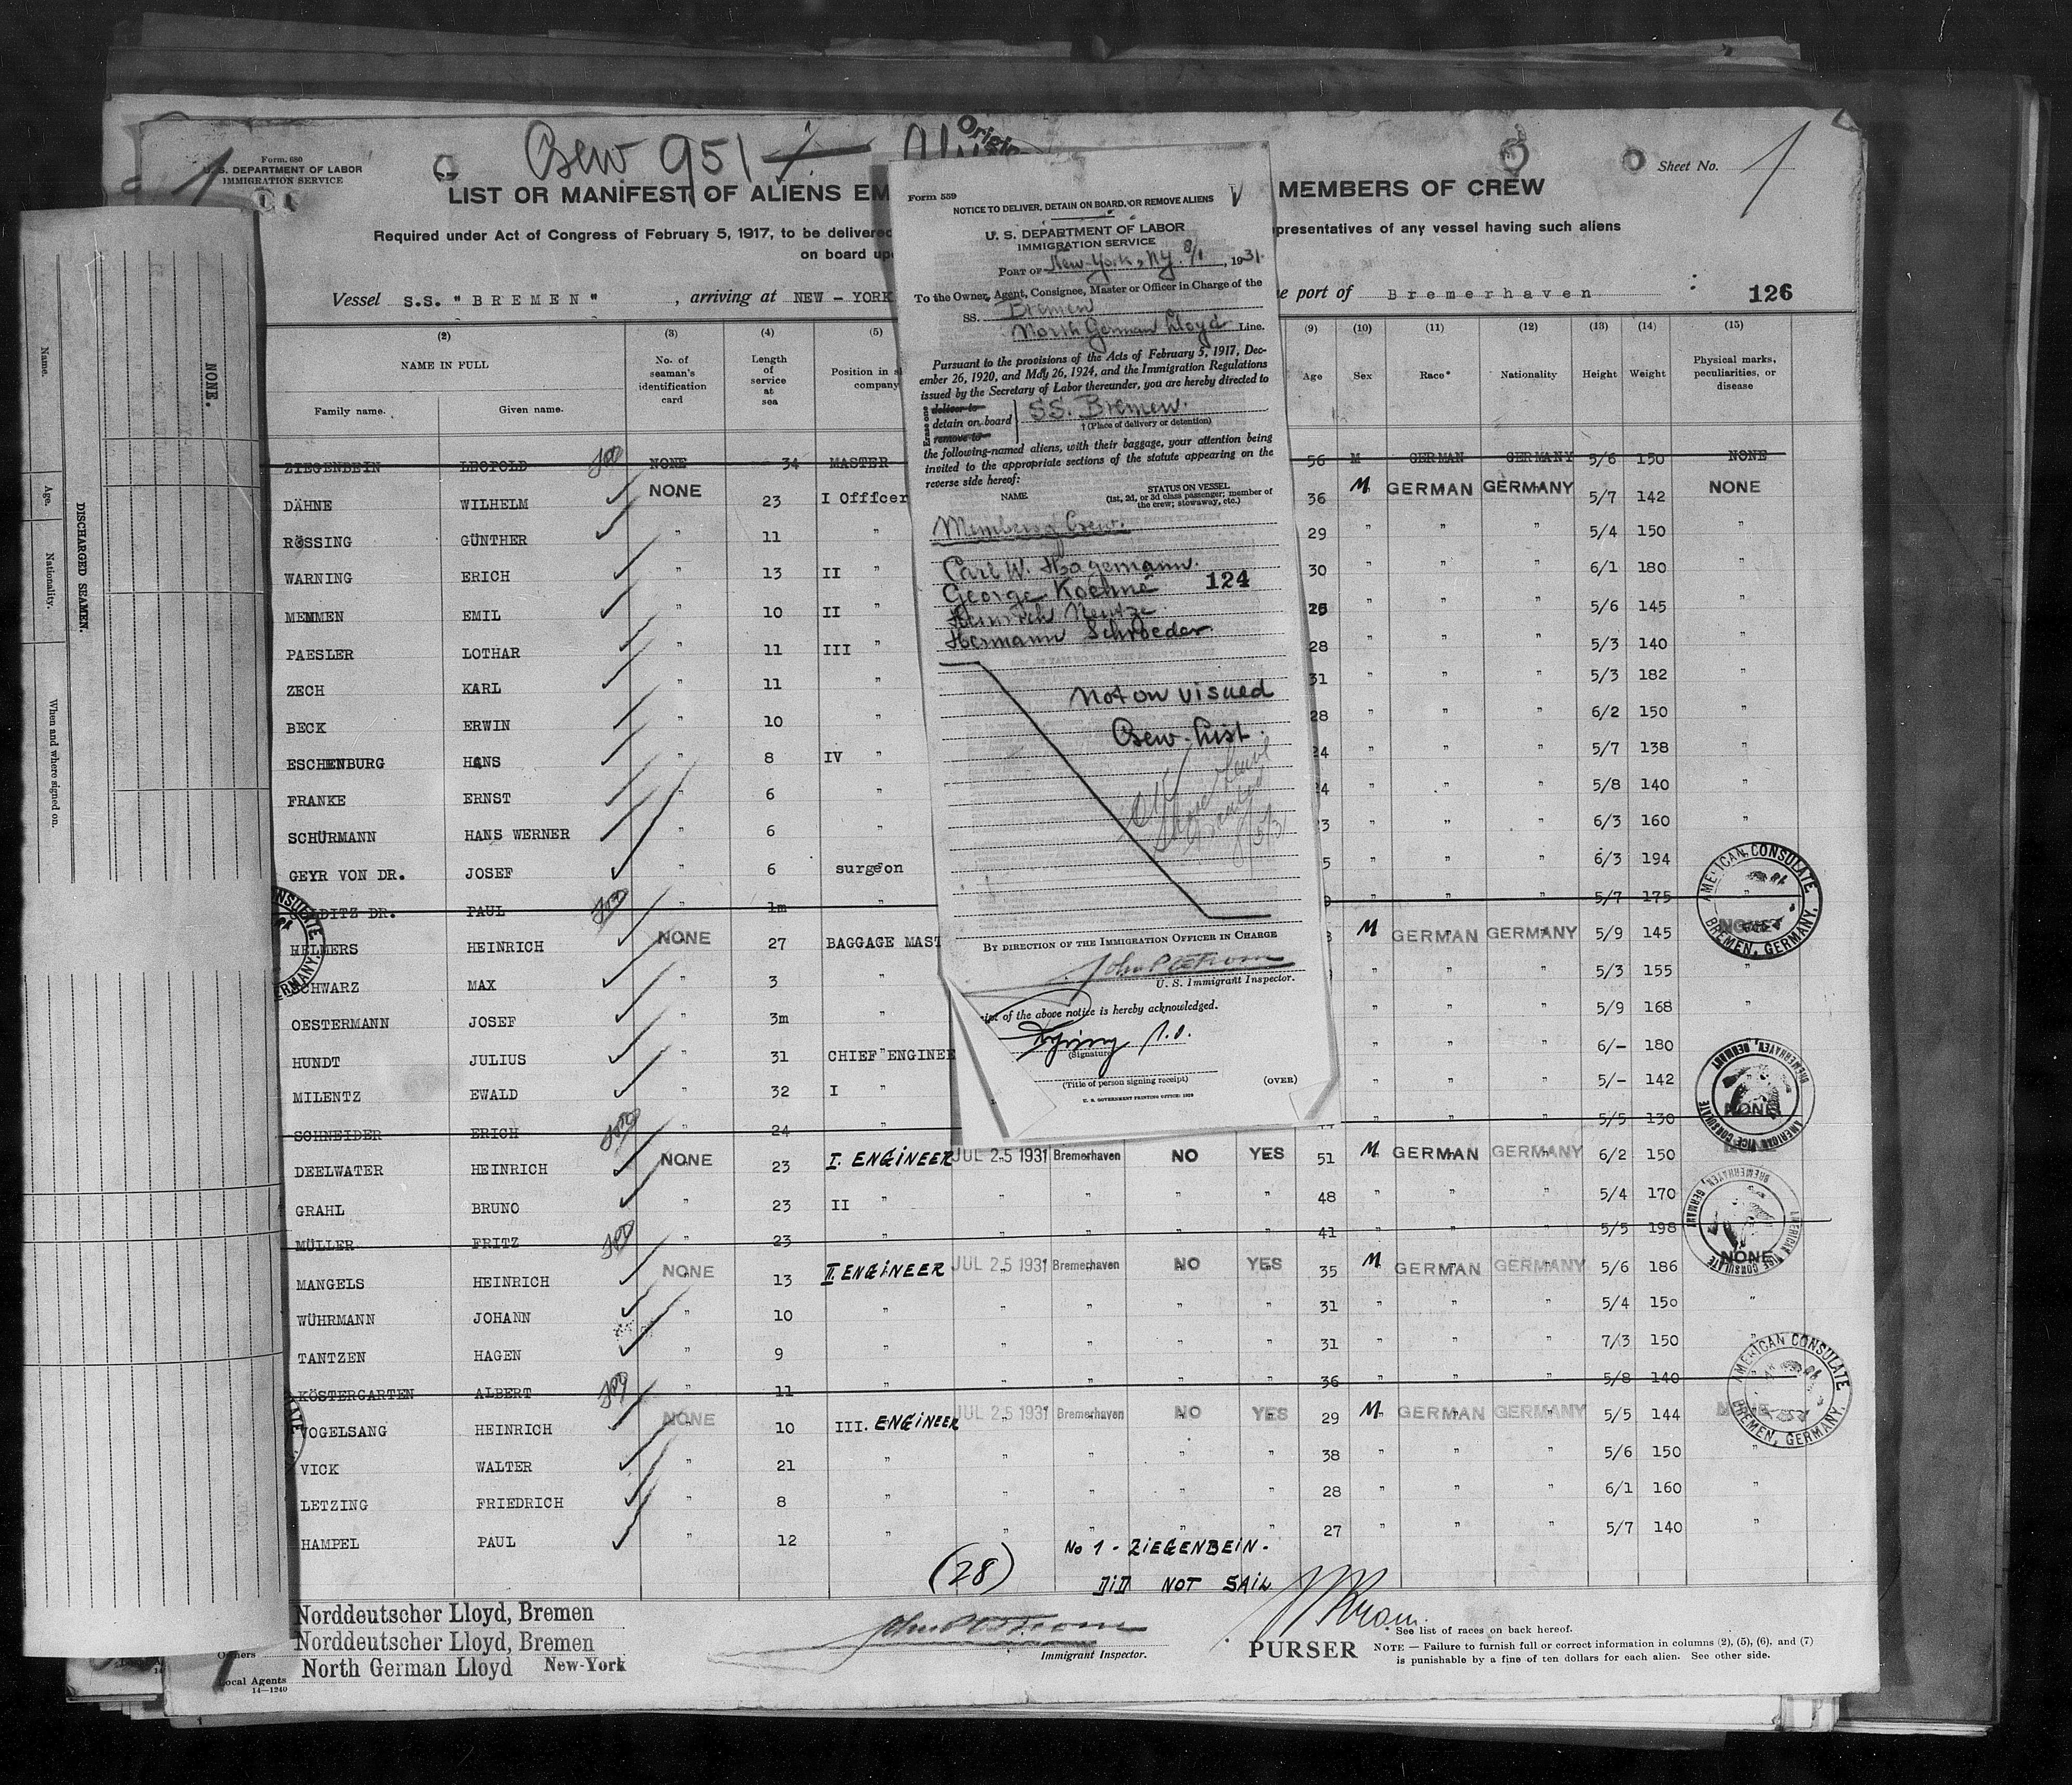 Crew 951
Form. 680
U. S. DEPARTMENT OF LABOR
IMMIGRATION SERVICE
Sheet No. 1
LIST OR MANIFEST OF ALIENS EM
MEMBERS OF CREW
Required under Act of Congress of February 5, 1917, to be delivered
presentatives of any vessel having such aliens
on board upo
Vessel S.S. "BREMEN" , arriving at NEW-YORK
e port of Bremerhaven
126
(2) (3) (4) (5) (9) (10) (11) (12) (13) (14) (15)
NAME IN FULL
Family name. Given name.
No. of seaman's identification card
Length of service at sea
Position in s company
Age Sex Race* Nationality Height Weight
Physical marks, peculiarities, or disease
ZIEGENBEIN LEOPOLD NONE 34 MASTER 56 M GERMAN GERMANY 5/6 150 NONE
DÄHNE WILHELM NONE 23 I Officer 36 M GERMAN GERMANY 5/7 142 NONE
RÖSSING GÜNTHER " 11 " 29 " " " 5/4 150 "
WARNING ERICH " 13 II " 30 " " " 6/1 180 "
MEMMEN EMIL " 10 II " " " " 5/6 145 "
PAESLER LOTHAR " 11 III " 28 " " " 5/3 140 "
ZECH KARL " 11 " 31 " " " 5/3 182 "
BECK ERWIN " 10 " 28 " " " 6/2 150 "
ESCHENBURG HANS " 8 IV " 24 " " " 5/7 138 "
FRANKE ERNST " 6 " 24 " " " 5/8 140 "
SCHÜRMANN HANS WERNER " 6 " 3 " " " 6/3 160 "
GEYR VON DR. JOSEF " 6 surgeon 5 " " " 6/3 194
DITZ DR. PAUL " 1m " " " " 5/7 175 "
HELMERS HEINRICH NONE 27 BAGGAGE MAST M GERMAN GERMANY 5/9 145 NONE
SCHWARZ MAX " 3 " " " " 5/3 155 "
OESTERMANN JOSEF " 3m " " " " 5/9 168 "
HUNDT JULIUS " 31 CHIEF ENGINEE " " " 6/- 180
MILENTZ EWALD " 32 I " " " " 5/- 142 NONE
SCHNEIDER ERICH " 24 " " " " 5/5 130
DEELWATER HEINRICH NONE 23 I. ENGINEER JUL 25 1931 Bremerhaven NO YES 51 M GERMAN GERMANY 6/2 150
GRAHL BRUNO " 23 II " " " " " 48 " " " 5/4 170
MÜLLER FRITZ " 23 " " " " " 41 " " " 5/5 198
MANGELS HEINRICH NONE 13 II. ENGINEER JUL 25 1931 Bremerhaven NO YES 35 M GERMAN GERMANY 5/6 186 NONE
WÜHRMANN JOHANN " 10 " " " " " 31 " " " 5/4 150 "
TANTZEN HAGEN 9 " " " " " 31 " " " 7/3 150 "
KÖSTERGARTEN ALBERT " 11 " " " " " 36 " " " 5/8 140
VOGELSANG HEINRICH NONE 10 III. ENGINEER JUL 25 1931 Bremerhaven NO YES 29 M GERMAN GERMANY 5/5 144 NONE
VICK WALTER " 21 " " " " " 38 " " " 5/6 150 "
LETZING FRIEDRICH " 8 " " " " " 28 " " " 6/1 160 "
HAMPEL PAUL " 12 " " " " " 27 " " " 5/7 140 "
(28)
No 1 - ZIEGENBEIN -
DID NOT SAIL
Norddeutscher Lloyd, Bremen
Norddeutscher Lloyd, Bremen
Owners
North German Lloyd New-York
Local Agents
14—1240
Immigrant Inspector.
PURSER
* See list of races on back hereof.
NOTE — Failure to furnish full or correct information in columns (2), (5), (6). and (7)
is punishable by a fine of ten dollars for each alien. See other side.
Form 559
NOTICE TO DELIVER, DETAIN ON BOARD, OR REMOVE ALIENS
U. S. DEPARTMENT OF LABOR
IMMIGRATION SERVICE
PORT OF New-York, NY. 8/1, 1931.
To the Owner, Agent, Consignee, Master or Officer in Charge of the
SS. Bremen
North German Lloyd Line.
Pursuant to the provisions of the Acts of February 5, 1917, Dec-
ember 26, 1920, and May 26, 1924, and the Immigration Regulations
issued by the Secretary of Labor thereunder, you are hereby directed to
Erase one
deliver to
detain on board
remove to
SS. Bremen.
† (Place of delivery or detention)
the following-named aliens, with their baggage, your attention being
invited to the appropriate sections of the statute appearing on the
reverse side hereof:
NAME
STATUS ON VESSEL
(1st, 2d, or 3d class passenger; member of
the crew; stowaway, etc.)
Members of Crew.
Carl W. Hagemann.
George Koehne
124
Heinrich Nentze
Hermann Schroeder
Not on visaed
Crew-List.
BY DIRECTION OF THE IMMIGRATION OFFICER IN CHARGE
U. S. Immigrant Inspector.
ipt of the above notice is hereby acknowledged.
(Signature)
(Title of person signing receipt)
(OVER)
U. S. GOVERNMENT PRINTING OFFICE: 1929
NONE.
DISCHARGED SEAMEN.
Name.
Age.
Nationality.
When and where signed on.
AMERICAN CONSULATE
BREMEN, GERMANY.
AMERICAN VICE CONSULATE
BREMERHAVEN, GERMANY
AMERICAN VICE CONSULATE
BREMERHAVEN, GERMANY
AMERICAN CONSULATE
BREMEN, GERMANY.